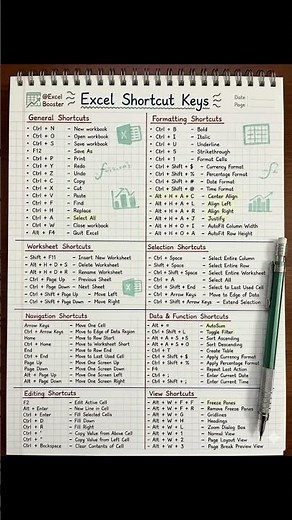 @Excel Booster
Excel Shortcut Keys
Date :
Page :
General Shortcuts
Ctrl + N - New workbook
Ctrl + O - Open workbook
Ctrl + S - Save workbook
F12 - Save As
Ctrl + P - Print
Ctrl + Y - Redo
Ctrl + Z - Undo
Ctrl + C - Copy
Ctrl + X - Cut
Ctrl + V - Paste
Ctrl + F - Find
Ctrl + H - Replace
Ctrl + A - Select All
Ctrl + W - Close workbook
Alt + F4 - Quit Excel
Formatting Shortcuts
Ctrl + B - Bold
Ctrl + I - Italic
Ctrl + U - Underline
Ctrl + 5 - Strikethrough
Ctrl + 1 - Format Cells
Ctrl + Shift + $ - Currency Format
Ctrl + Shift + % - Percentage Format
Ctrl + Shift + # - Date Format
Ctrl + Shift + @ - Time Format
Alt + H + A + C - Center Align
Alt + H + A + L - Align Left
Alt + H + A + R - Align Right
Alt + H + A + J - Justify
Alt + H + O + I - AutoFil Column Width
Alt + H + O + A - AutoFil Row Height
Worksheet Shortcuts
Shift + F11 - Insert New Worksheet
Alt + H + D + S - Delete Worksheet
Alt + H + O + R - Rename Worksheet
Ctrl + Page Up - Previous Sheet
Ctrl + Page Down - Next Sheet
Ctrl + Shift + Page Up - Move Left
Ctrl + Shift + Page Down - Move Right
Selection Shortcuts
Ctrl + Space - Select Entire Column
Shift + Space - Select Entire Row
Ctrl + A - Select All
Ctrl + Shift + End - Select to Last Used Cell
Ctrl + Arrow Keys - Move to Edge of Data
Ctrl + Shift + Arrow Keys - Extend Selection
Navigation Shortcuts
Arrow Keys - Move One Cell
Ctrl + Arrow Keys - Move to Edge of Data Region
Home - Move to Row Start
Ctrl + Home - Move to Worksheet Start
End - Move to Row End
Ctrl + End - Move to Last Used Cell
Page Up - Move One Screen Up
Page Down - Move One Screen Down
Alt + Page Up - Move One Screen Left
Alt + Page Down - Move One Screen Right
Data & Function Shortcuts
Alt + = - AutoSum
Ctrl + Shift + L - Toggle Filter
Alt + A + S + S - Sort Ascending
Alt + A + S + D - Sort Descending
Ctrl + T - Create Table
Ctrl + Shift + $ - Apply Currency Format
Ctrl + Shift + % - Apply Percentage Format
F4 - Repeat Last Action
Ctrl + ; - Enter Current Date
Ctrl + Shift + ; - Enter Current Time
Editing Shortcuts
F2 - Edit Active Cell
Alt + Enter - New Line in Cell
Ctrl + Enter - Fill Selected Cells
Ctrl + D - Fill Down
Ctrl + R - Fill Right
Copy Value from Above Cell
Copy Value from Left Cell
Ctrl + Backspace - Clear Contents of Cell
View Shortcuts
Alt + W + F + F - Freeze Panes
Alt + W + F + R - Remove Freeze Panes
Alt + W + G - Gridlines
Alt + W + H - Headings
Alt + W + L - Zoom Dialog Box
Alt + W + 1 - Normal View
Alt + W + 2 - Page Layout View
Alt + W + 3 - Page Break Preview View